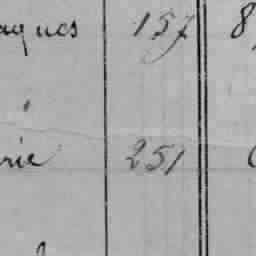 aques 157 8
rie 251